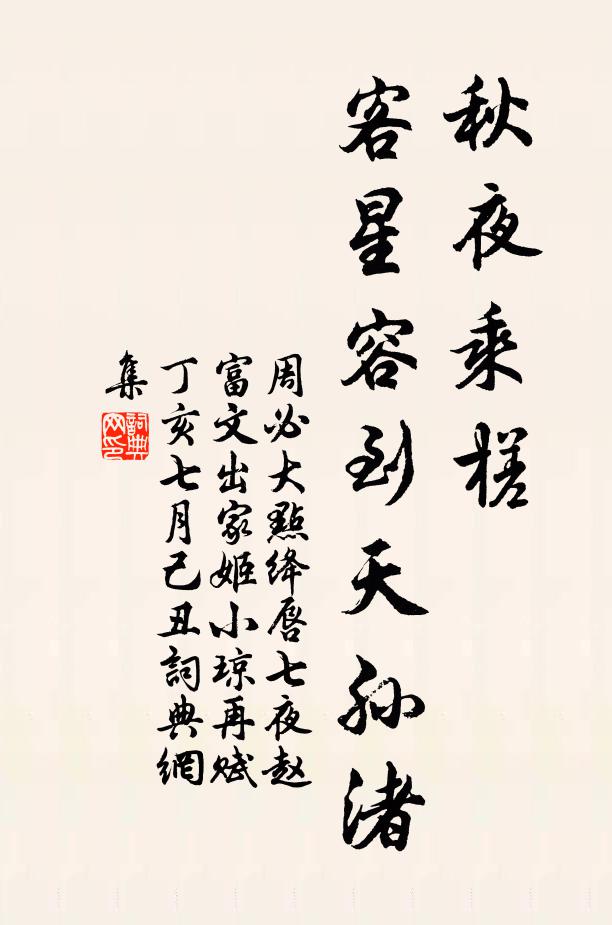 秋夜乘槎
客星容到天孙渚
周必大點绛唇七夜赵
富文出家姬小琼再赋
丁亥七月己丑詞典網
集
詞典
网印